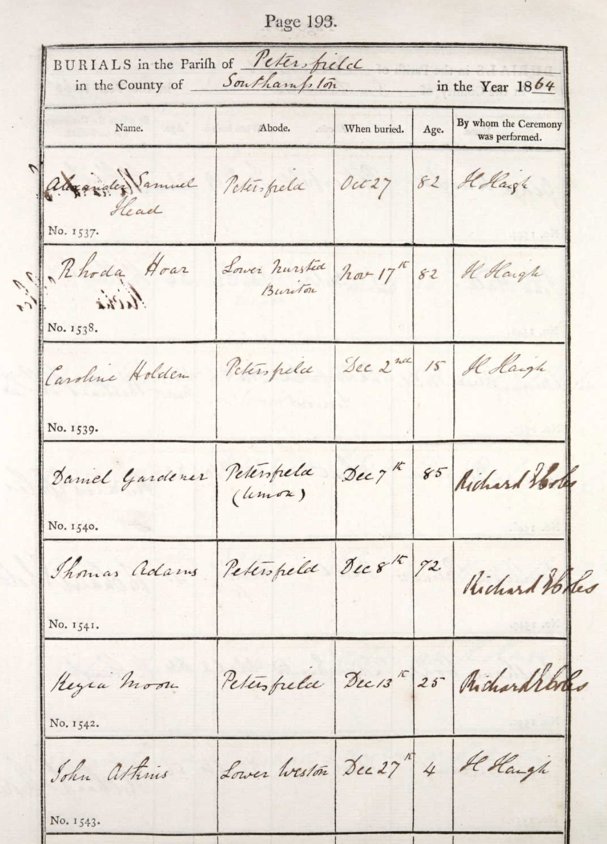 Page 193.
BURIALS in the Parish of Petersfield
in the County of Southampton in the Year 1864
Name. Abode. When buried. Age. By whom the Ceremony was performed.
Alexander Samuel Petersfield Oct 27 82 H Haigh
Head
No. 1537.
Rhoda Hoar Lower Nursted Nov 17th 82 H Haigh
Buriton
No. 1538.
Caroline Holden Petersfield Dec 2nd 15 H Haigh
No. 1539.
Daniel Gardener Petersfield Dec 7th 85 Richard Coles
(Union)
No. 1540.
Thomas Adams Petersfield Dec 8th 72 Richard Coles
No. 1541.
Kezia Moon Petersfield Dec 13th 25 Richard Coles
No. 1542.
John Atkins Lower Weston Dec 27th 4 H Haigh
No. 1543.